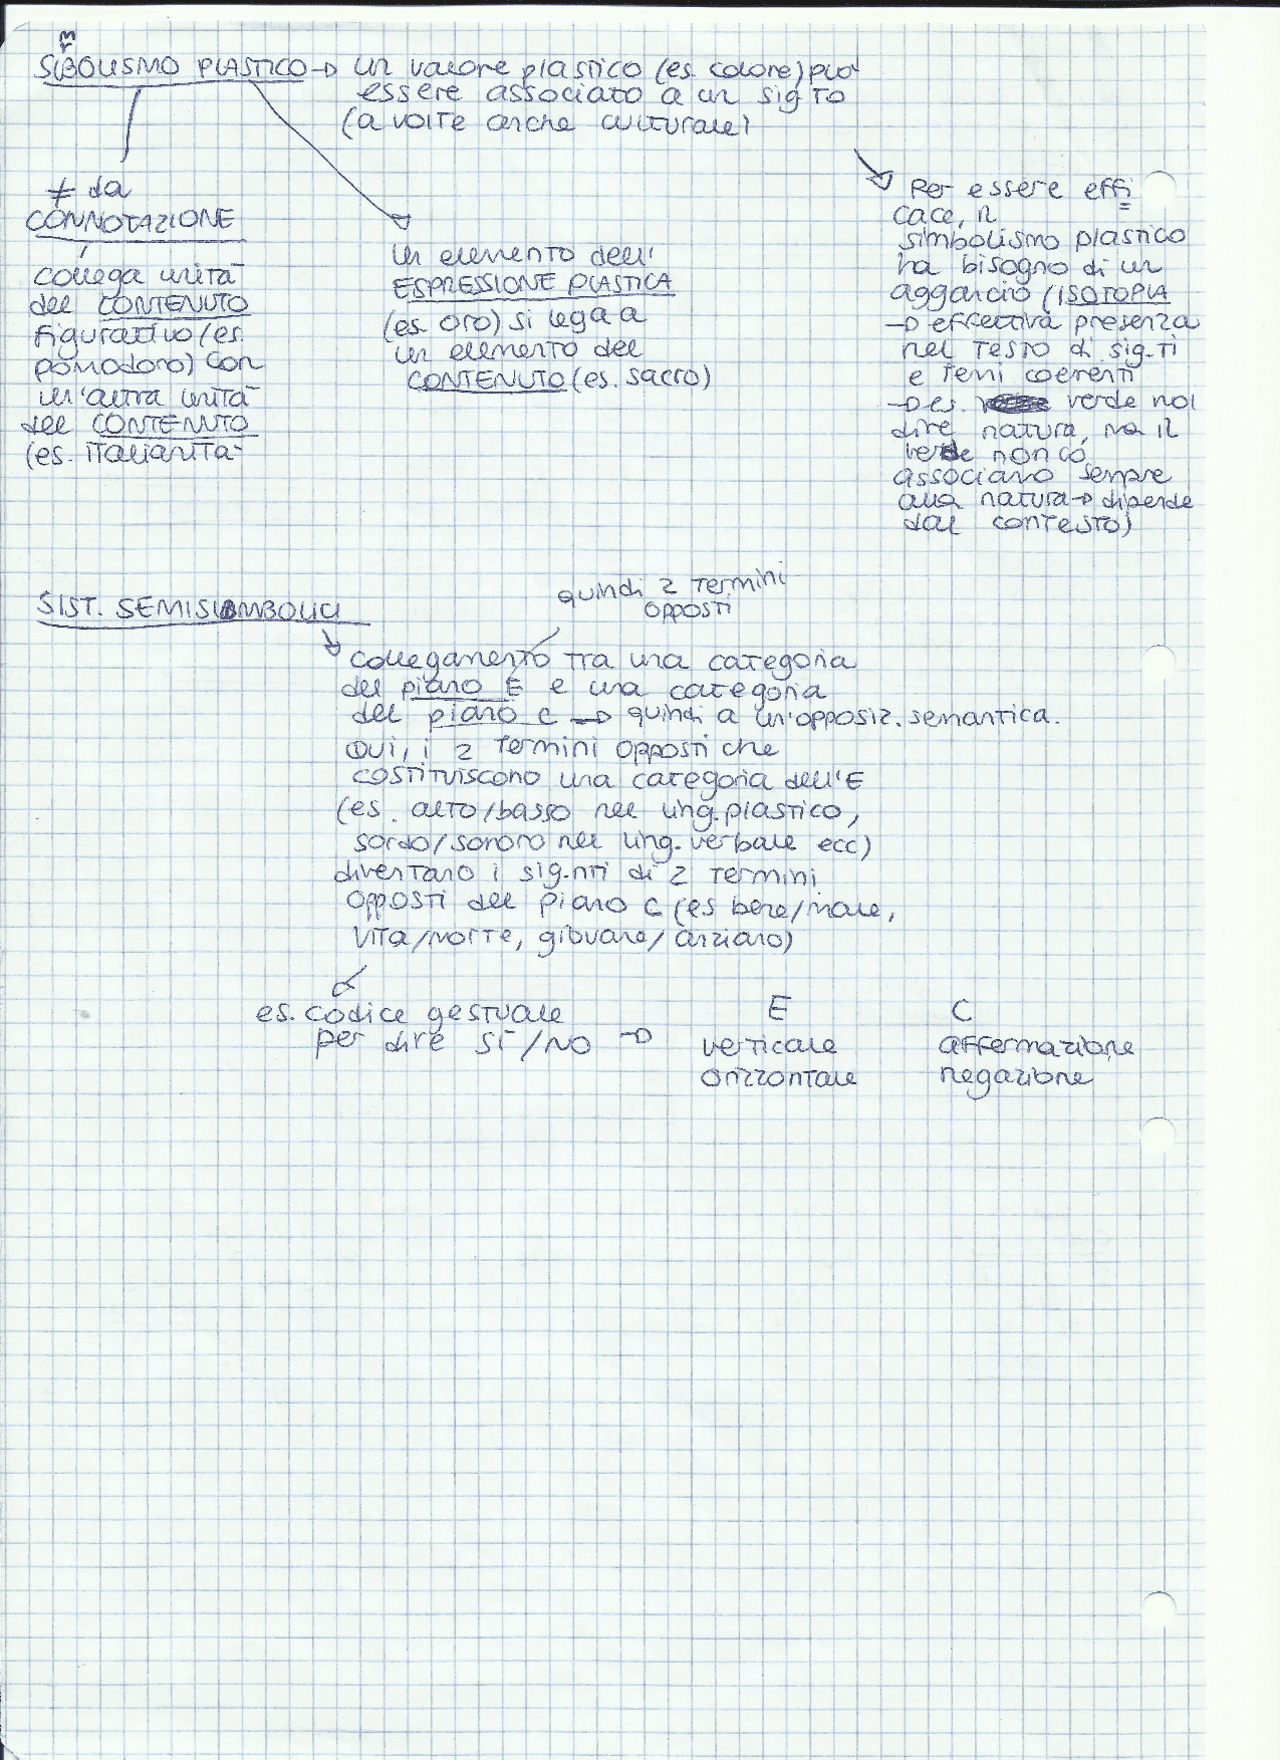 SIMBOLISMO PLASTICO → un valore plastico (es. colore) può
essere associato a un sig.to
(a volte anche culturale)
≠ da
CONNOTAZIONE
collega unità
del CONTENUTO
figurativo (es.
pomodoro) con
un'altra unità
del CONTENUTO
(es. italianità
un elemento dell'
ESPRESSIONE PLASTICA
(es. oro) si lega a
un elemento del
CONTENUTO (es. sacro)
Per essere effi
cace, il
simbolismo plastico
ha bisogno di un
aggancio (ISOTOPIA
→ effettiva presenza
nel testo di sig.ti
e temi coerenti
→ es. verde vuol
dire natura, ma il
verde non lo
associamo sempre
alla natura → dipende
dal contesto)
SIST. SEMISIMBOLICI
quindi 2 termini
opposti
collegamento tra una categoria
del piano E e una categoria
del piano C → quindi a un'opposiz. semantica.
Qui, i 2 termini opposti che
costituiscono una categoria dell'E
(es. alto/basso nel ling. plastico,
sordo/sonoro nel ling. verbale ecc)
diventano i sig.nti di 2 termini
opposti del piano C (es bene/male,
vita/morte, giovane/anziano)
es. codice gestuale
per dire sì/no →
E C
verticale affermazione
orizzontale negazione